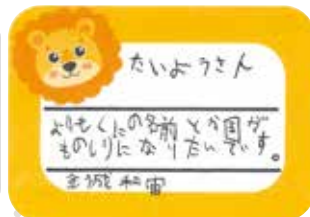 たいようさん
よりもくにの名前とか国が
ものしりになりたいです。
金城和宙